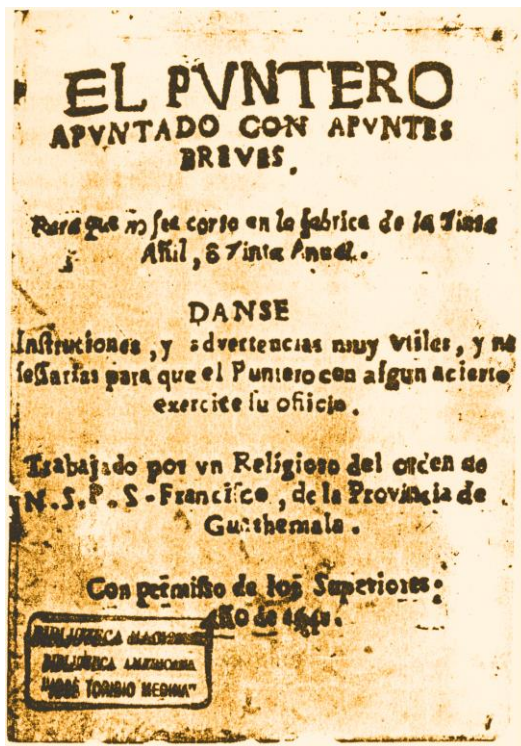 EL PVNTERO
APVNTADO CON APVNTES
BREVES.
Para que no sea corto en la fabrica de la Tinta
Añil, ò Tinta Anual.
DANSE
Instruciones, y advertencias muy vtiles, y ne
sessarias para que el Puntero con algun acierto
exercite su oficio.
Trabajado por vn Religioso del orden de
N.S.P.S. Francisco, de la Provincia de
Guathemala.
Con permisso de los Superiores:
Año de
BIBLIOTECA NACIONAL
BIBLIOTECA AMERICANA
"JOSÉ TORIBIO MEDINA"